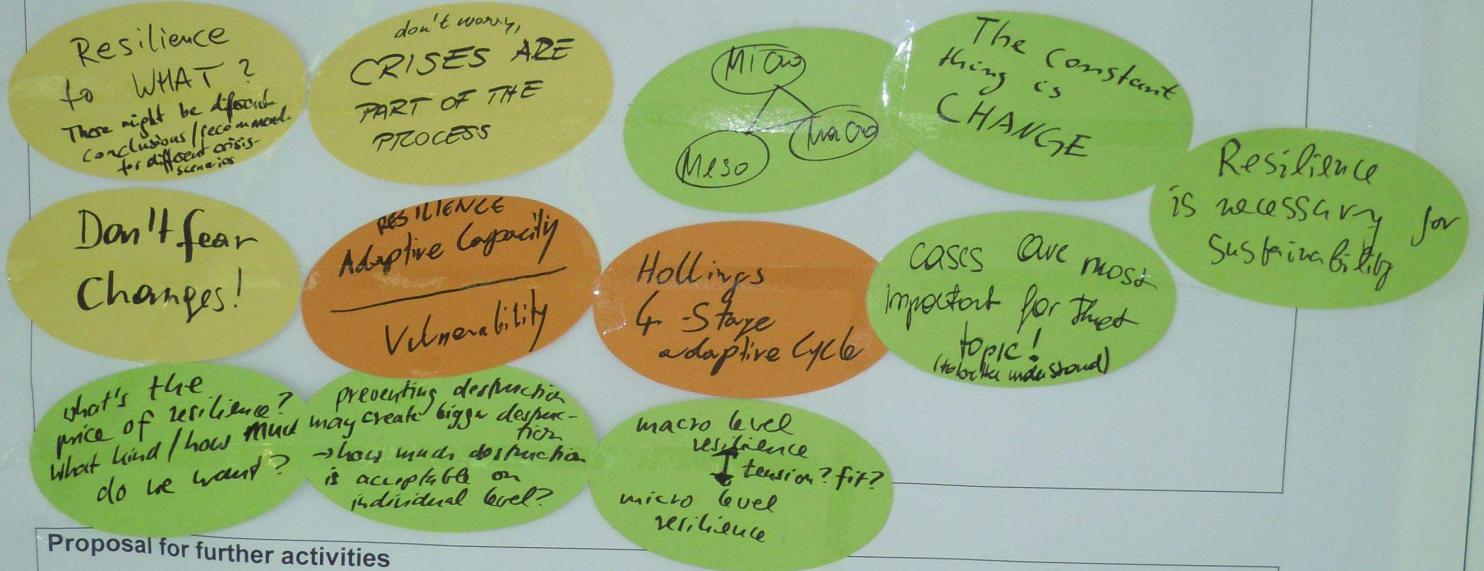 Resilience
to WHAT?
There might be different
conclusions/recommend.
for different crisis-
scenarios
don't worry,
CRISES ARE
PART OF THE
PROCESS
Micro
Meso
Macro
The constant
thing is
CHANGE
Resilience
is necessary for
sustainability
Don't fear
Changes!
RESILIENCE
Adaptive Capacity
Vulnerability
Hollings
4-Stage
adaptive Cycle
cases are most
important for that
topic!
(to better understand)
what's the
price of resilience?
what kind/how much
do we want?
preventing destruction
may create bigger destruc-
tion
→how much destruction
is acceptable on
individual level?
macro level
resilience
tension? fit?
micro level
resilience
Proposal for further activities